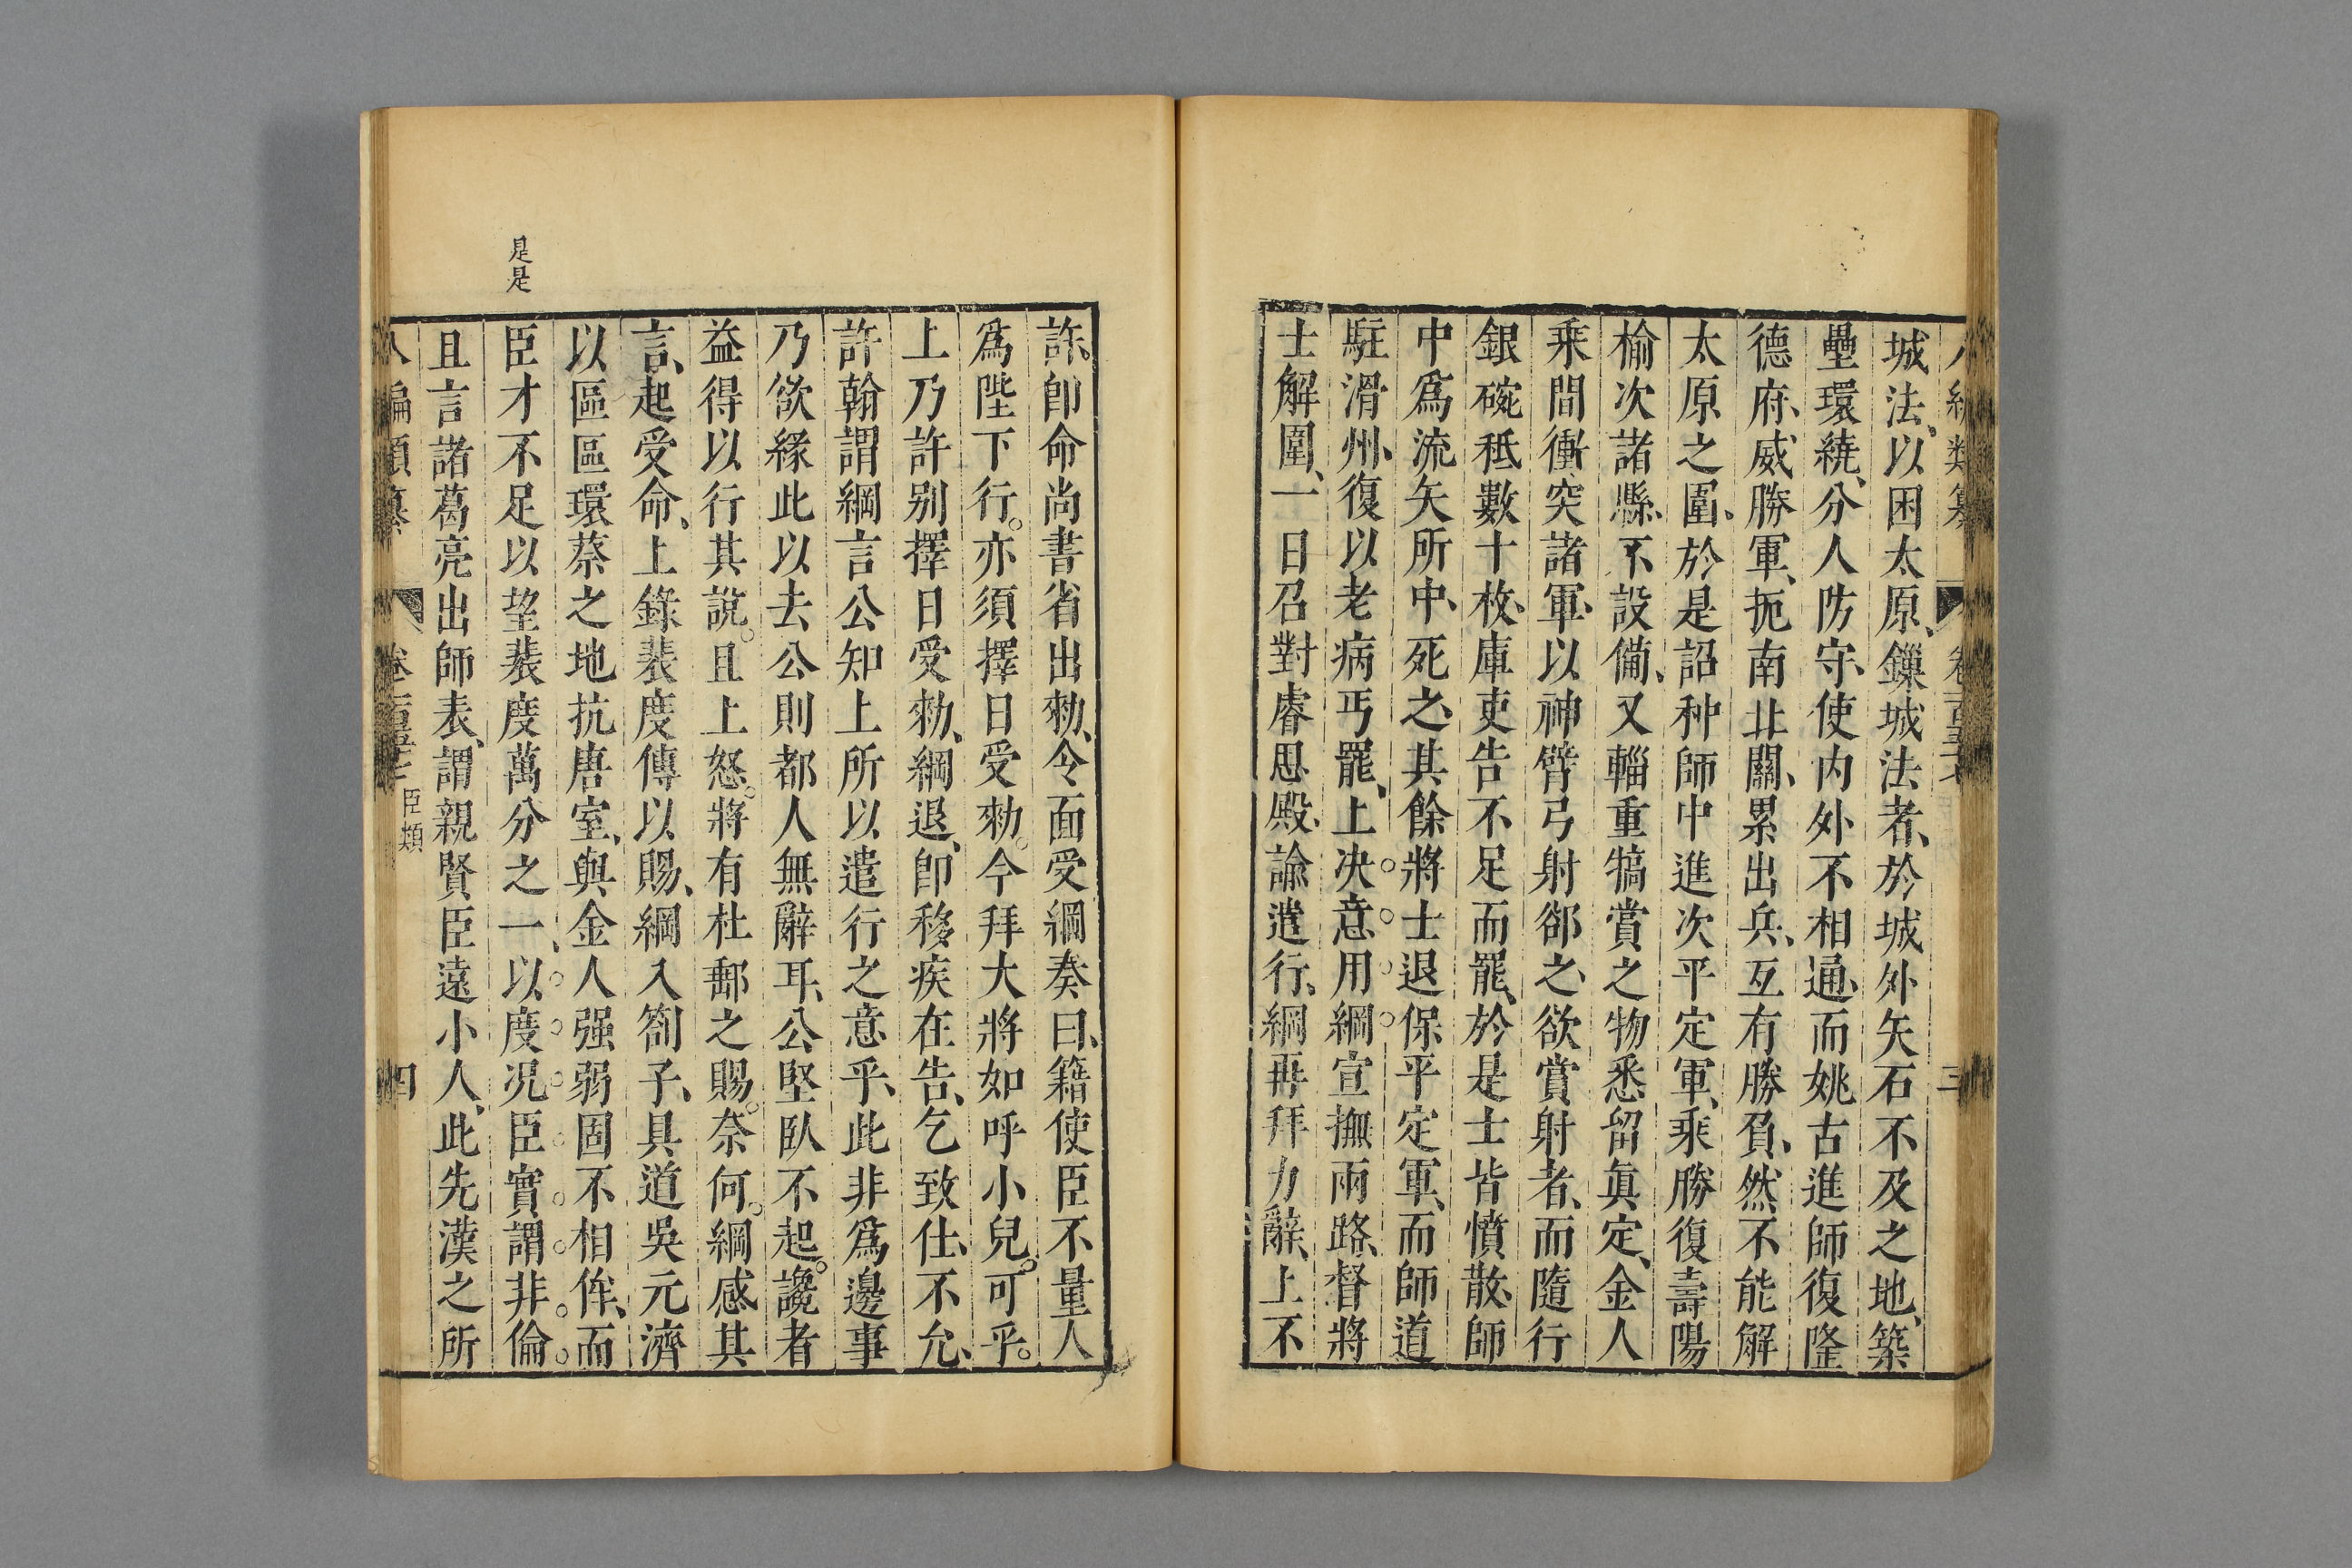 城法、以困太原、鏁城法者、於城外矢石不及之地、築
壘環繞、分人防守、使內外不相通、而姚古進師復隆
德府、威勝軍、扼南北關、累出兵、互有勝負、然不能解
太原之圍、於是詔种師中進次平定軍、乘勝復壽陽
榆次諸縣、不設備、又輜重犒賞之物悉留眞定、金人
乘間衝突諸軍、以神臂弓射郤之、欲賞射者、而隨行
銀碗秪數十枚、庫吏告不足而罷、於是士皆憤散、師
中爲流矢所中、死之、其餘將士退保平定軍、而師道
駐滑州、復以老病丐罷、上決意用綱宣撫兩路、督將
士解圍、一日召對睿思殿、諭遣行、綱再拜力辭、上不
許、卽命尚書省出勑、令面受綱奏曰、籍使臣不量人
爲陛下行。亦須擇日受勑。今拜大將如呼小兒。可乎。
上乃許别擇日受勑、綱退、卽移疾在告、乞致仕、不允、
許翰謂綱言公知上所以遣行之意乎、此非爲邊事
乃欲緣此以去公則都人無辭耳、公堅臥不起。讒者
益得以行其說。且上怒。將有杜郵之賜。奈何。綱感其
言、起受命、上錄裴度傳以賜、綱入劄子、具道吳元濟
以區區環蔡之地抗唐室、與金人强弱固不相侔、而
臣才不足以望裴度萬分之一、以度况臣實謂非倫。
且言諸葛亮出師表、謂親賢臣遠小人、此先漢之所
是是
臣類
四